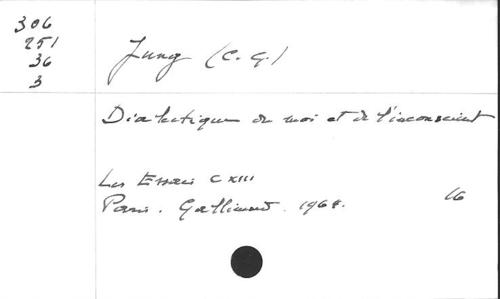 306
251
36
3
Jung (C. G.)
Dialectique du moi et de l'inconscient
Les Essais CXIII
Paris. Gallimard. 1964.
16